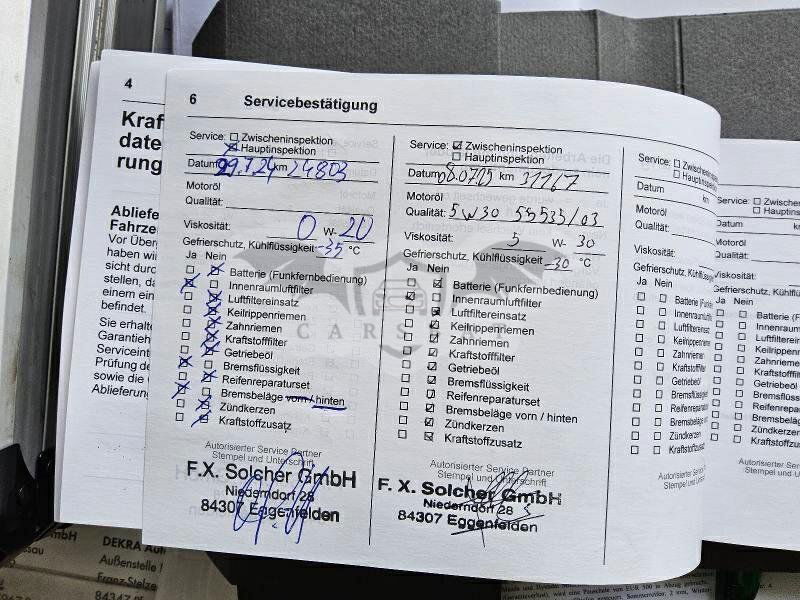 4
Kraf
date
rung
Abliefe
Fahrze
Vor Über
haben wi
sicht durc
stellen, da
einem ein
befindet.
Sie erhalte
Garantiehe
Serviceint
Prüfung de
sowie die
Ablieferung
6 Servicebestätigung
Service: Zwischeninspektion
Hauptinspektion
Datum 29.7.24 km 24803
Motoröl
Qualität:
Viskosität: 0 W- 20
Gefrierschutz, Kühlflüssigkeit -35 °C
Ja Nein
Batterie (Funkfernbedienung)
Innenraumluftfilter
Luftfiltereinsatz
Keilrippenriemen
Zahnriemen
Kraftstofffilter
Getriebeöl
Bremsflüssigkeit
Reifenreparaturset
Bremsbeläge vorn / hinten
Zündkerzen
Kraftstoffzusatz
Autorisierter Service Partner
Stempel und Unterschrift
F.X. Solcher GmbH
Niederndorf 28
84307 Eggenfelden
Service: Zwischeninspektion
Hauptinspektion
Datum 08.07.25 km 31167
Motoröl
Qualität: 5W30 55535/03
Viskosität: 5 W- 30
Gefrierschutz, Kühlflüssigkeit -30 °C
Ja Nein
Batterie (Funkfernbedienung)
Innenraumluftfilter
Luftfiltereinsatz
Keilrippenriemen
Zahnriemen
Kraftstofffilter
Getriebeöl
Bremsflüssigkeit
Reifenreparaturset
Bremsbeläge vorn / hinten
Zündkerzen
Kraftstoffzusatz
Autorisierter Service Partner
Stempel und Unterschrift
F. X. Solcher GmbH
Niederndorf 28
84307 Eggenfelden
Service: Zwischeninspektion
Hauptinspektion
Datum km
Motoröl
Qualität:
Viskosität:
Gefrierschutz, Kühlflüss
Ja Nein
Batterie (Funkf
Innenraumluft
Luftfiltereinsat
Keilrippenriem
Zahnriemen
Kraftstofffilter
Getriebeöl
Bremsflüssig
Reifenrepara
Bremsbeläge
Zündkerzen
Kraftstoffzus
Autorisierter Se
Stempel und
Service: Zwischeninsp
Hauptinspekt
Datum
Motoröl
Qualität:
Viskosität:
Gefrierschutz, Kühlflüssig
Ja Nein
Batterie (F
Innenraum
Luftfilterein
Keilrippenr
Zahnrieme
Kraftstofffi
Getriebeöl
Bremsflüss
Reifenrepa
Bremsbelä
Zündkerze
Kraftstoffz
Autorisierte
Stempel u
mbH
DEKRA Aut
Außenstelle
Franz-Stelze
84347